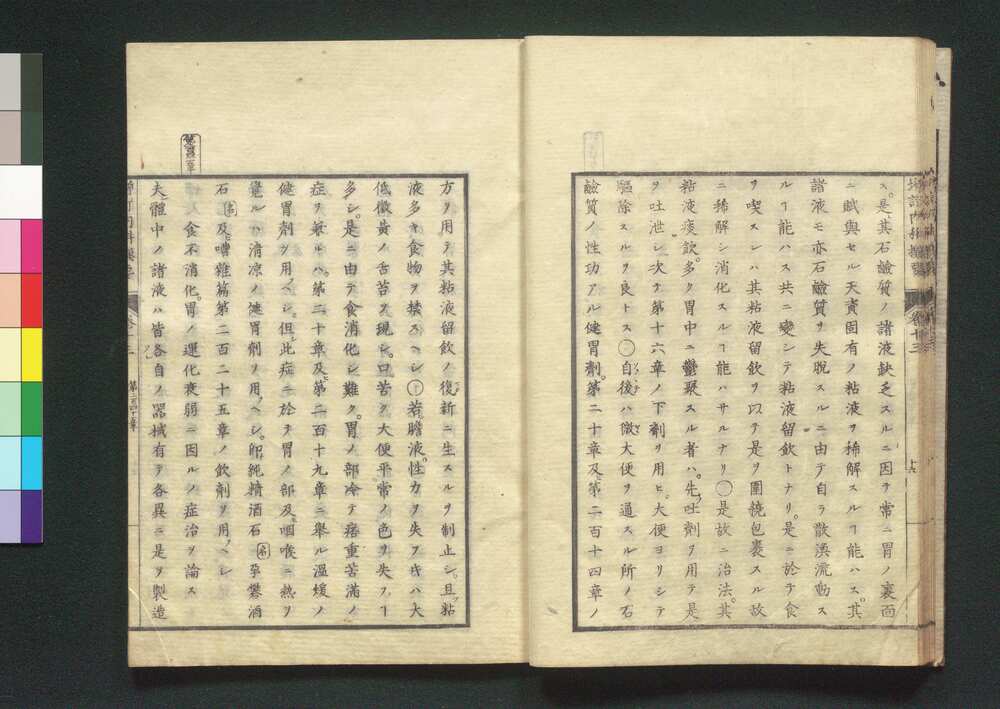 ス。是其石鹼質ノ諸液缺乏スルニ因テ常ニ胃ノ裏面
ニ賦與セル天資固有ノ粘液ヲ稀解スルヿ能ハス。其
諸液モ亦石鹼質ヲ失脫スルニ由テ自ラ散渙流動ス
ルヿ能ハス共ニ變シテ粘液留飲トナリ。是ニ於テ食
ヲ喫スレハ其粘液留飲ヲ以テ是ヲ圍繞包裹スル故
ニ稀解シ消化スルヿ能ハサルナリ○是故ニ治法。其
粘液痰飲。多ク胃中ニ鬱聚スル者ハ。先ツ吐劑ヲ用テ是
ヲ吐泄シ次テ第十六章ノ下劑ヲ用ヒ。大便ヨリシテ
驅除スルヲ良トス○自後ハ微大便ヲ通スル所ノ石
鹼質ノ性功アル健胃劑。第二十章及第二百十四章ノ
方ヲ用テ其粘液留飲ノ復新ニ生スルヲ制止シ。且粘
液多キ食物ヲ禁スヘシ○若膽液。性力ヲ失フキハ大
低微黃ノ舌苔ヲ現シ。口苦ク大便平常ノ色ヲ失フヿ
多シ。是ニ由テ食消化シ難ク。胃ノ部冷テ痞重苦滿ノ
症ヲ兼ルハ。第二十章及第二百十九章ニ舉ル溫煖ノ
健胃劑ヲ用ヘシ。但此症ニ於テ胃ノ部及咽喉ニ熱ヲ
覺ルハ清凉ノ健胃劑ヲ用ヘシ。卽純精酒石 孕礬酒
石 及嘈雜篇第二百二十五章ノ飲劑ヲ用ヘシ
食不消化。胃ノ運化衰弱ニ因ルノ症治ヲ論ス
夫體中ノ諸液ハ皆各自ノ器械有テ各異ニ是ヲ製造